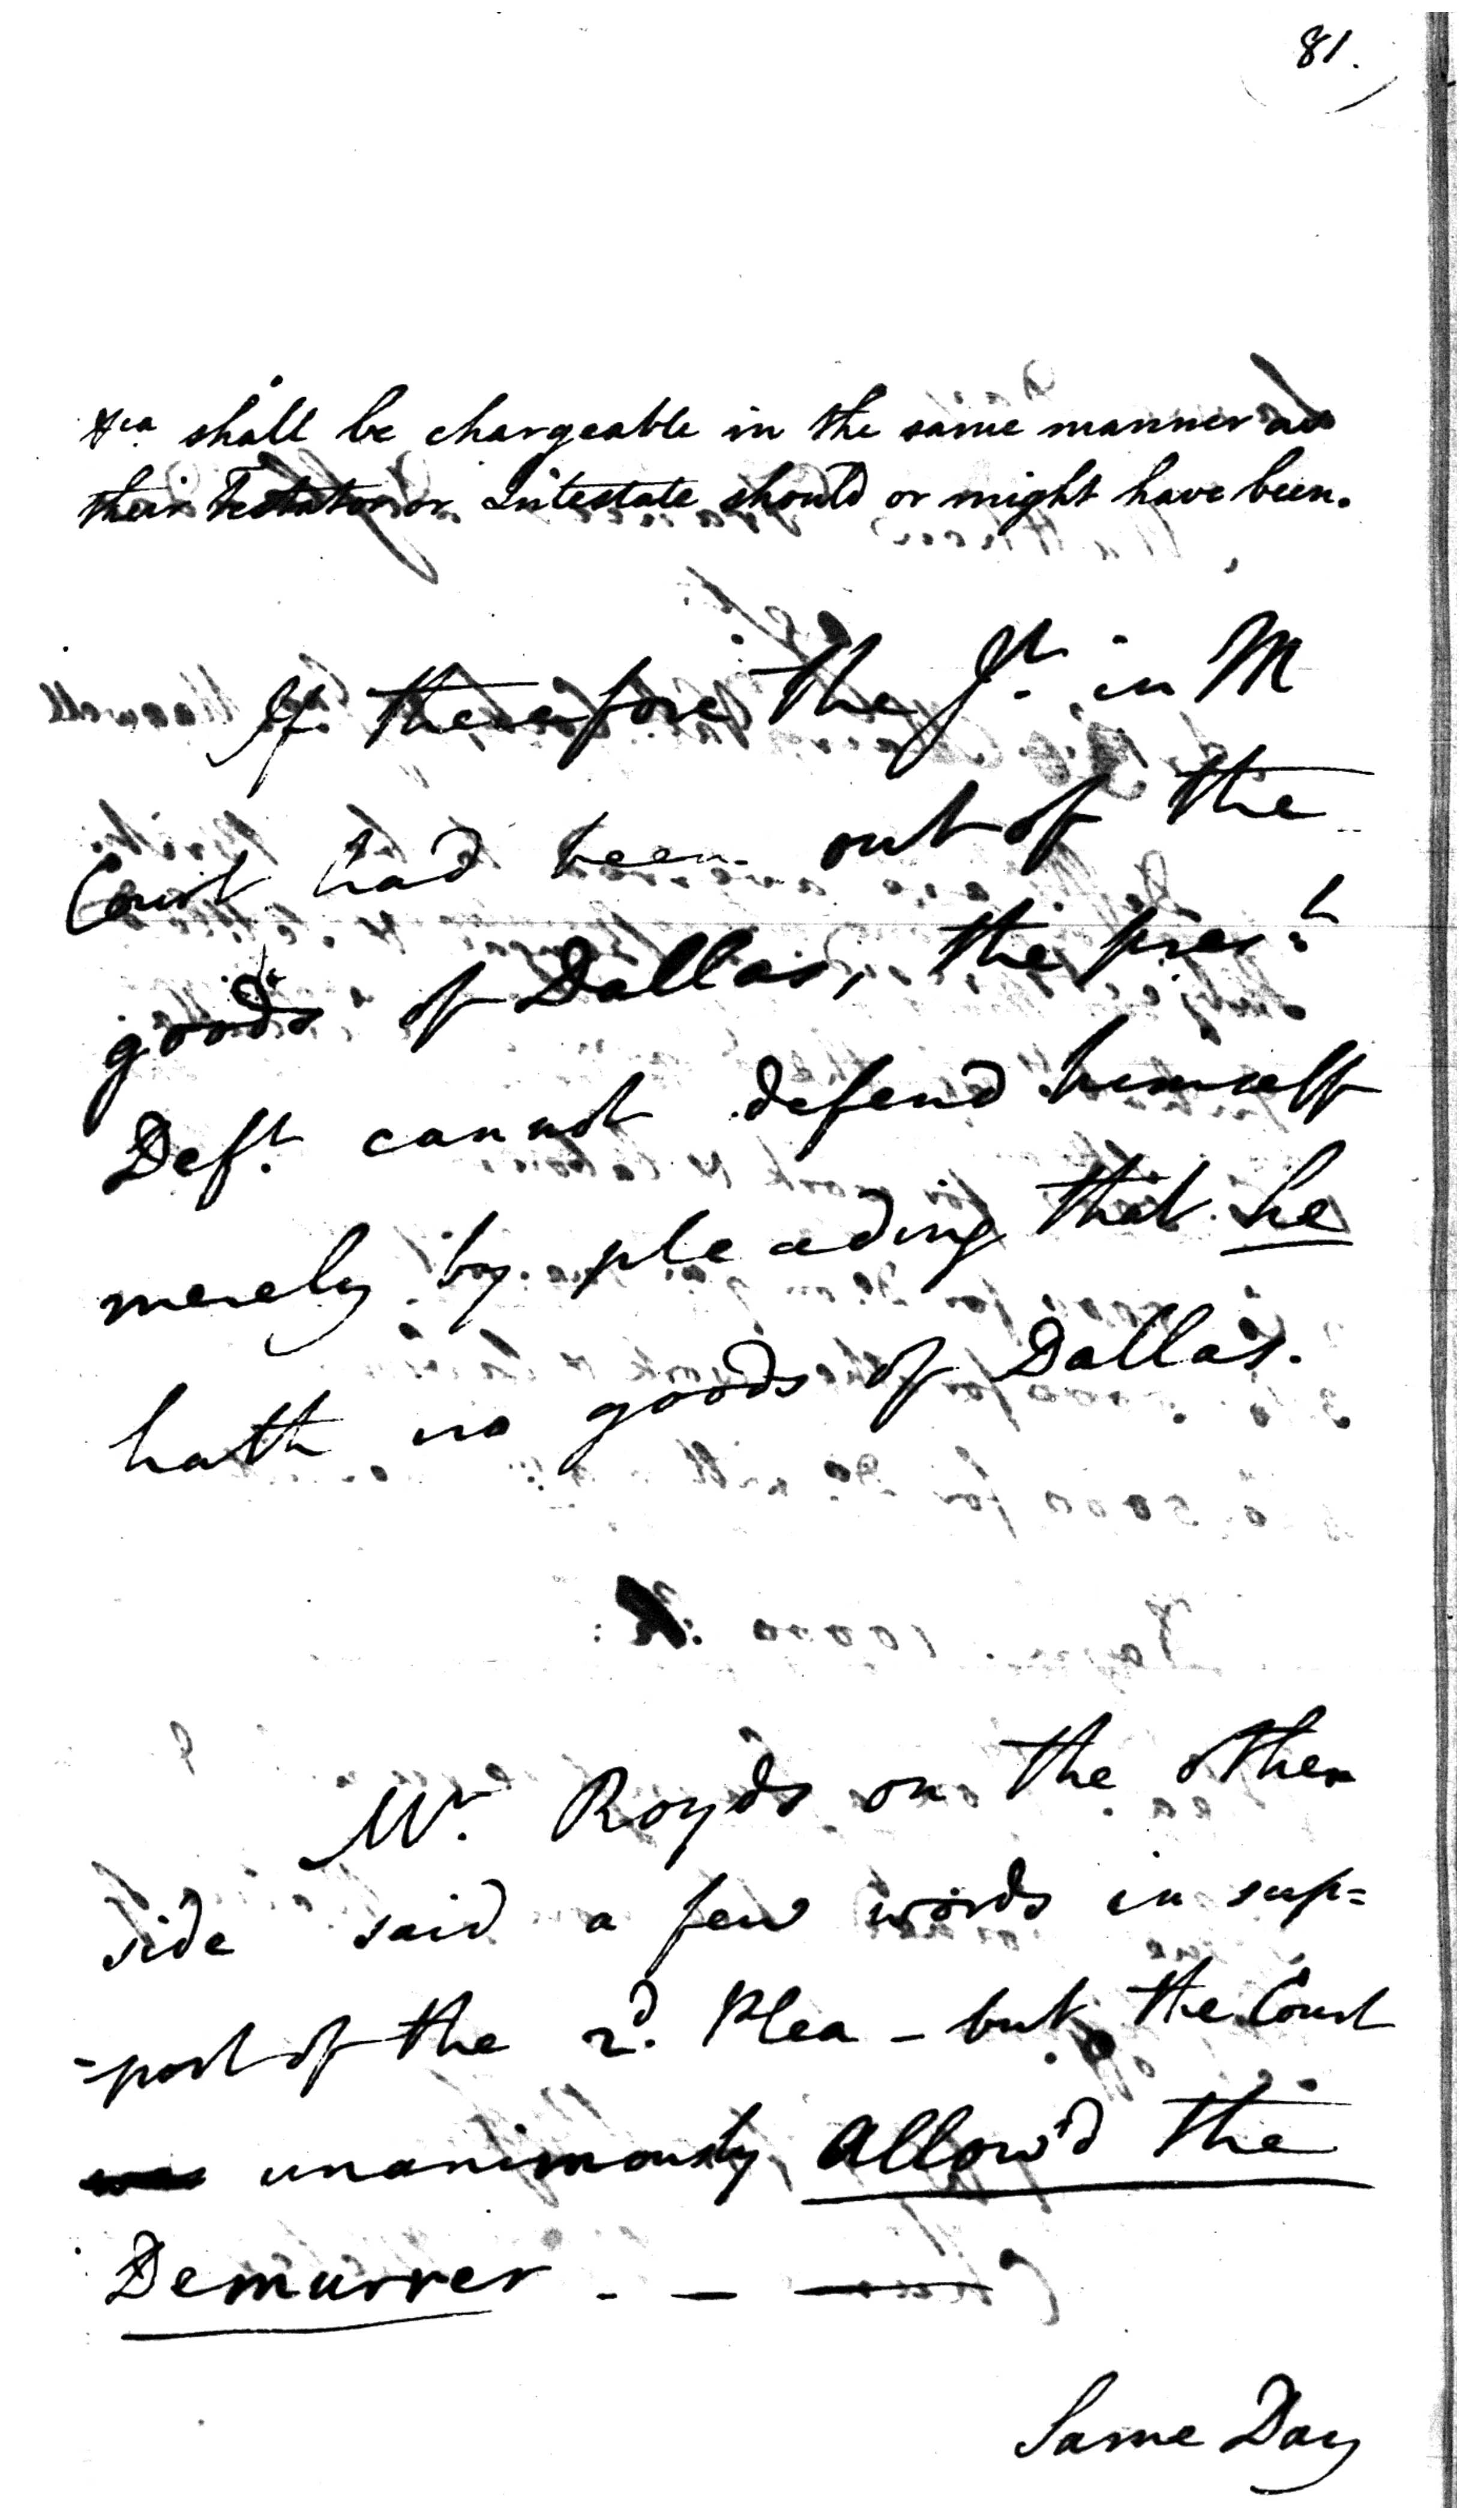 81.
&ca shall be chargeable in the same manner as
their Testator or Intestate should or might have been.
If therefore the Jt. in M
Court had been out of the
goods of Dallas, the pres:t
Deft. cannot defend himself
merely by pleading that he
hath no goods of Dallas.
Mr. Royds on the other
side said a few words in sup=
-port of the 2d. Plea - but the Court
unanimously allow'd the
Demurrer - - —
Same Day